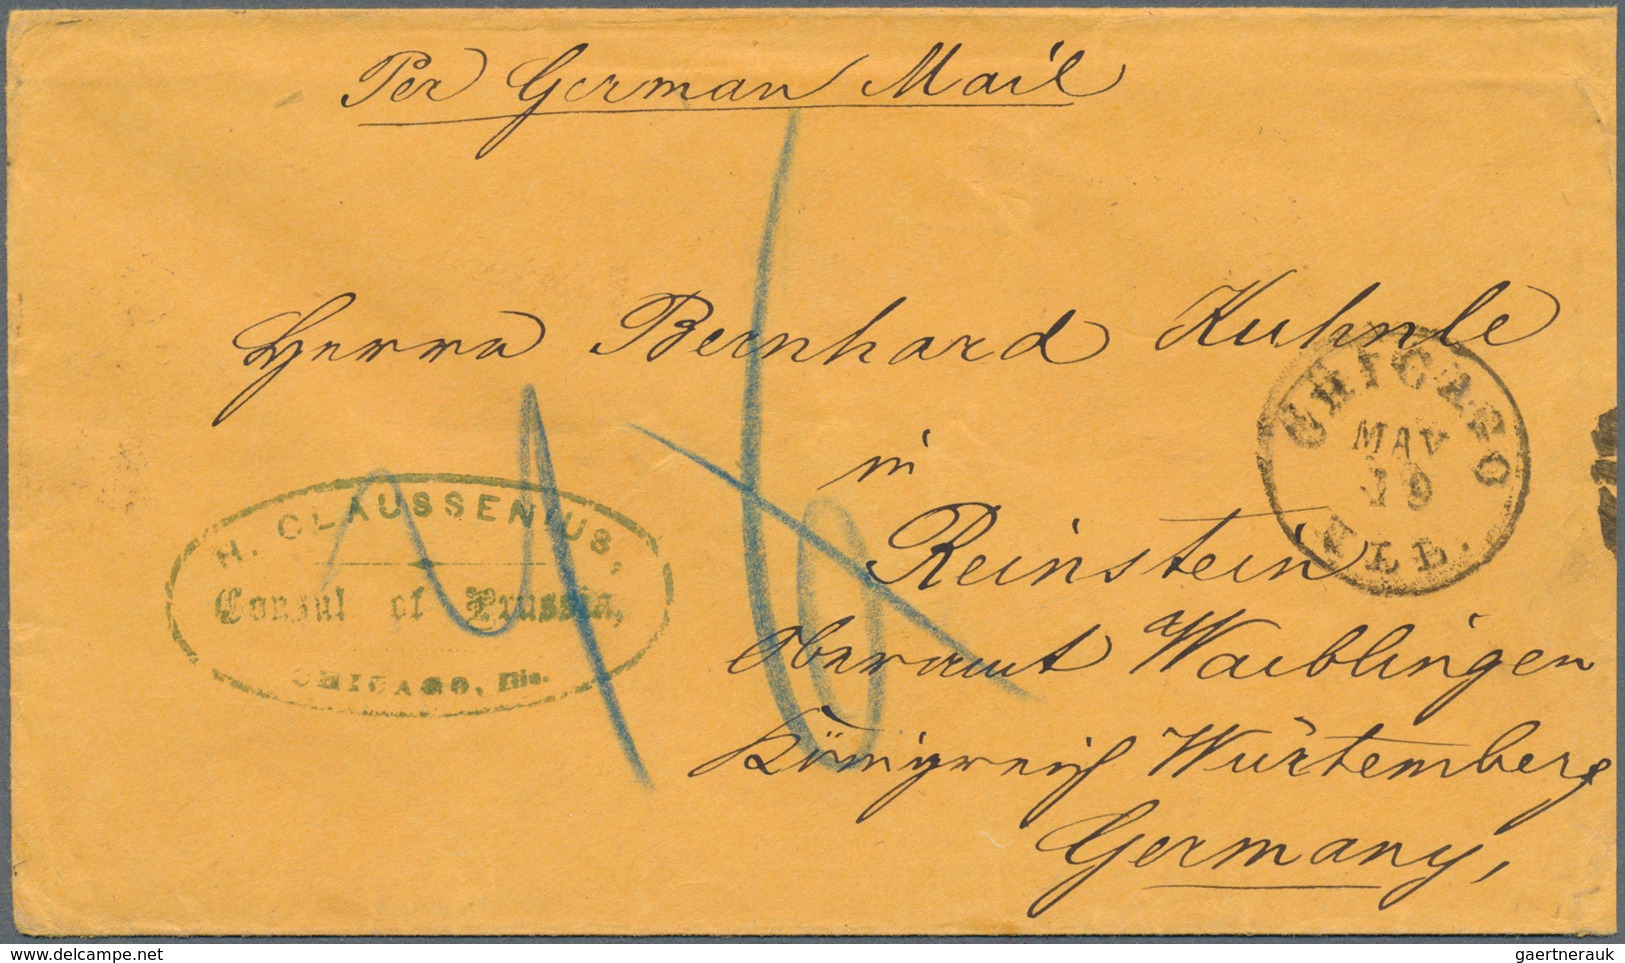 Per German Mail
Herrn Bernhard Kuhnle
in
Reinstein
Oberamt Waiblingen
Königreich Würtemberg
Germany,
H. CLAUSSENIUS,
Consul of Prussia,
CHICAGO, Ills.
CHICAGO
MAY
19
ILL.
gaertnerauk